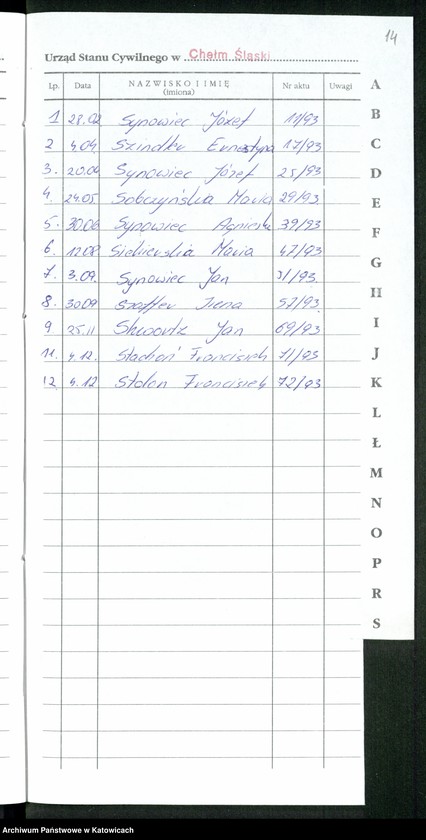 14
Urząd Stanu Cywilnego w Chełm Śląski
Lp. Data NAZWISKO I IMIĘ (imiona) Nr aktu Uwagi
1 28.02 Synowiec Józef 11/93
2 4.04 Szindler Ernestyna 17/93
3. 20.04 Synowiec Józef 25/93
4. 24.05 Sobczyńska Maria 29/93
5. 30.06 Synowiec Agnieszka 39/93
6. 12.08 Maria 47/93
7. 3.09. Synowiec Jan 51/93
8. 30.09 Szaffer Irena 52/93
9 25.11 Skwortz Jan 69/93
11. 4.12. Stachoń Franciszek 71/93
12 4.12 Stolon Franciszek 72/93
A
B
C
D
E
F
G
H
I
J
K
L
Ł
M
N
O
P
R
S
Archiwum Państwowe w Katowicach